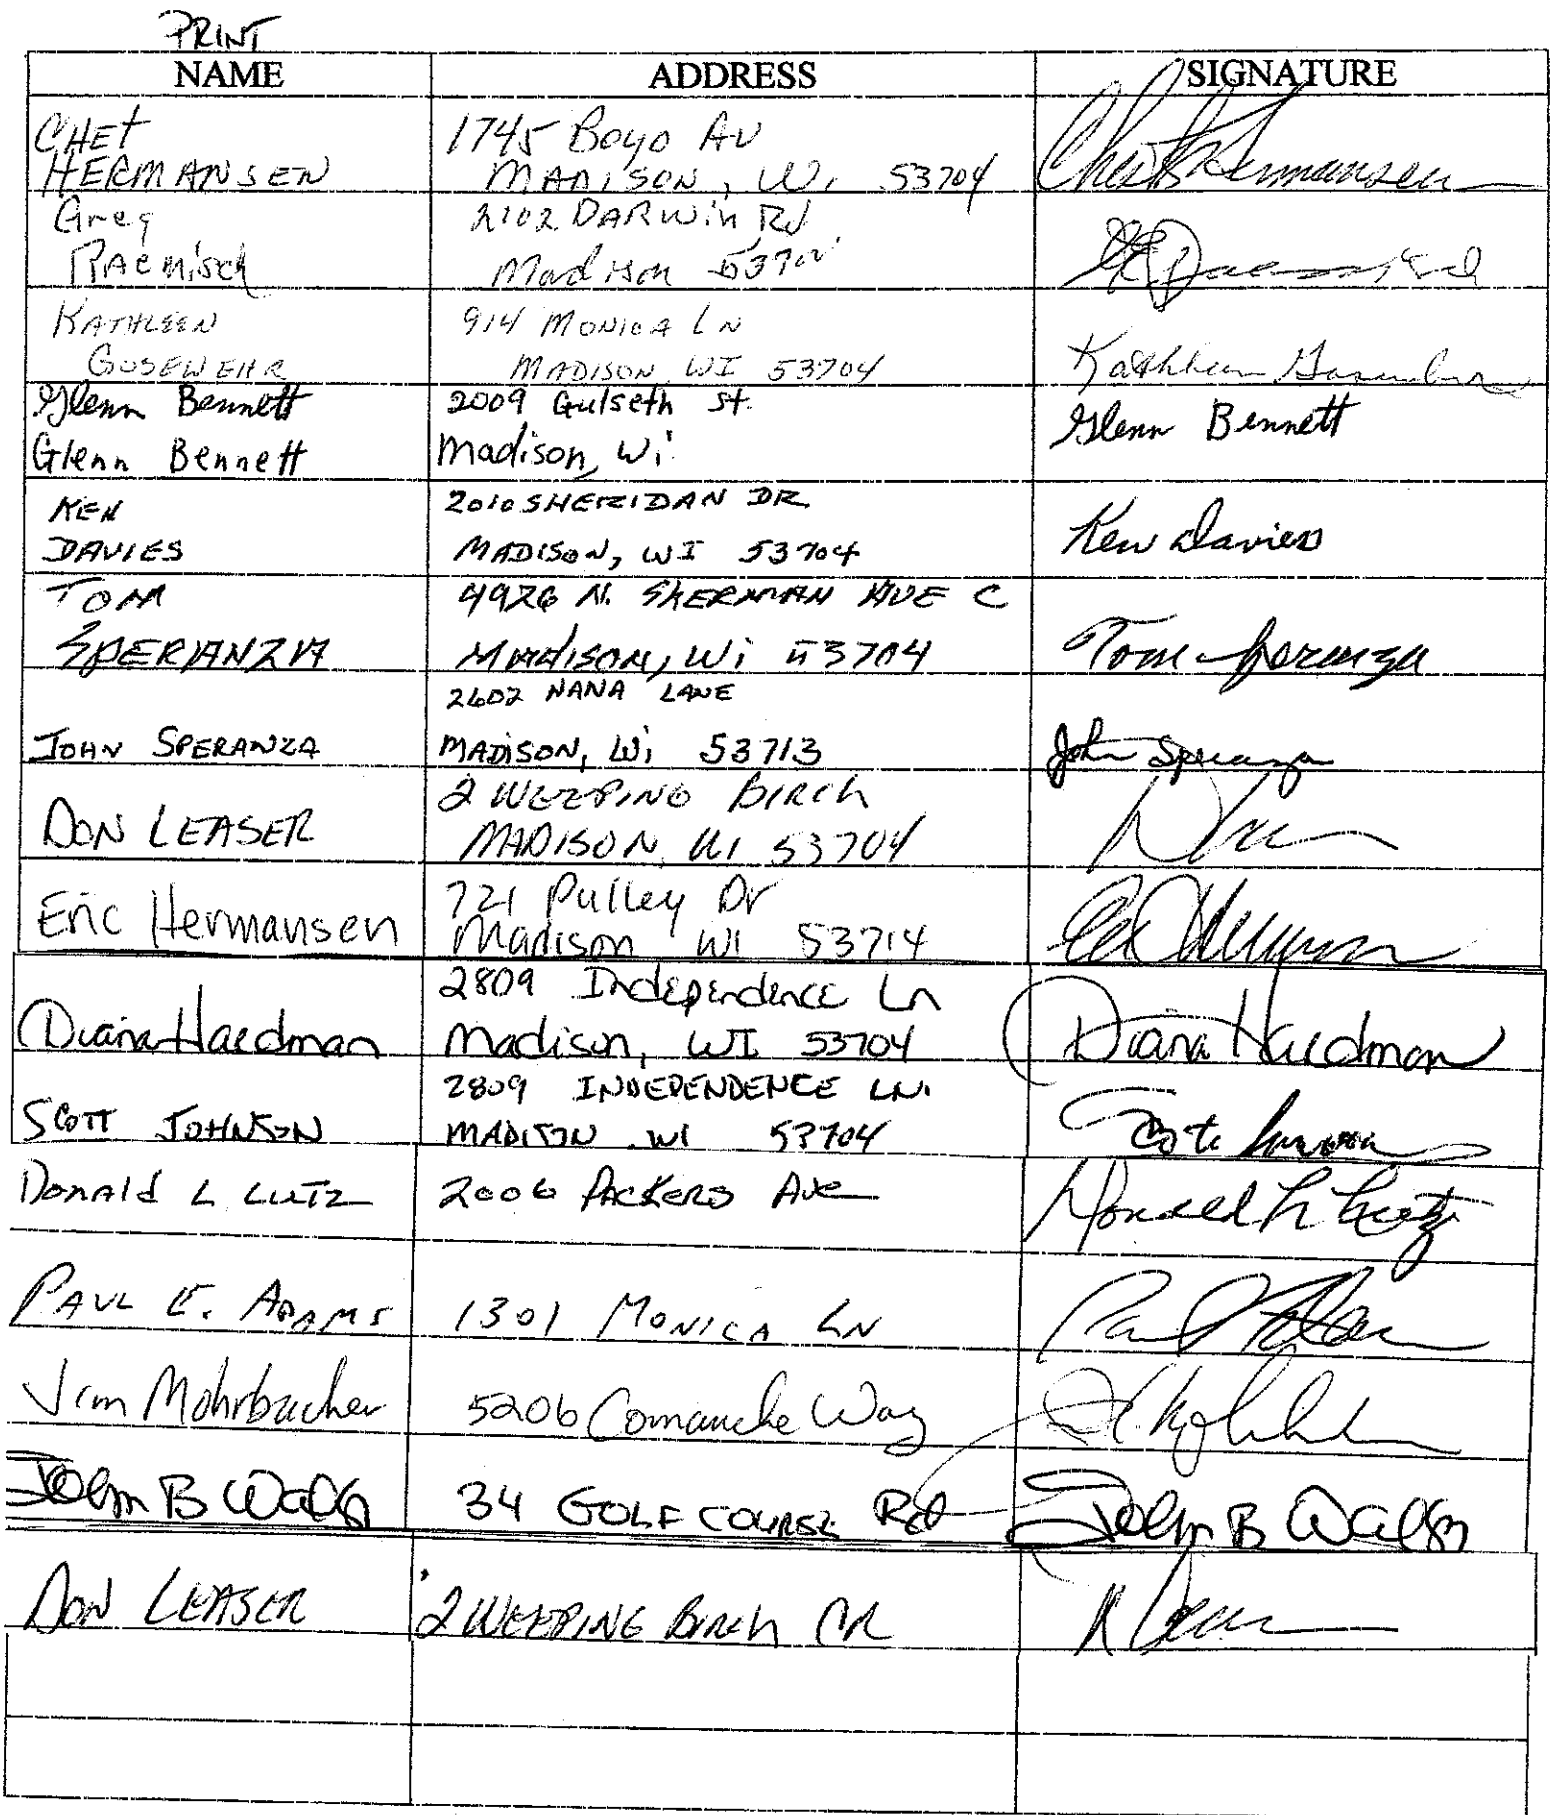 PRINT
NAME ADDRESS SIGNATURE
CHET
HERMANSEN
1745 Boyo Av
MADISON, Wi 53704
Chet Hermansen
Greg
Raemisch
2102 DARWIN Rd
Madison
KATHLEEN
GOSEWEHR
914 MONICA LN
MADISON WI 53704
Kathleen
Glenn Bennett
Glenn Bennett
2009 Gulseth St.
Madison, Wi.
Glenn Bennett
KEN
DAVIES
2010 SHERIDAN DR.
MADISON, WI 53704
Ken Davies
TOM
SPERANZA
4926 N. SHERMAN AVE C
MADISON, Wi 53704
Tom Speranza
JOHN SPERANZA
2602 NANA LANE
MADISON, Wi 53713
John Speranza
DON LEASER
2 WEEPING BIRCH
MADISON, WI 53704
Eric Hermansen
721 Pulley Dr
Madison WI 53714
Diana Haedman
2809 Independence Ln
Madison, WI 53704
Diana Haedman
SCOTT JOHNSON
2809 INDEPENDENCE LN.
MADISON WI 53704
Donald L LUTZ
2006 PACKERS Ave
Donald L Lutz
PAUL E. ADAMS
1301 MONICA LN
Paul
Jim Mohrbacher
5206 Comanche Way
John B Walsh
34 GOLF COURSE Rd
John B Walsh
DON LEASER
2 WEEPING BIRCH CR